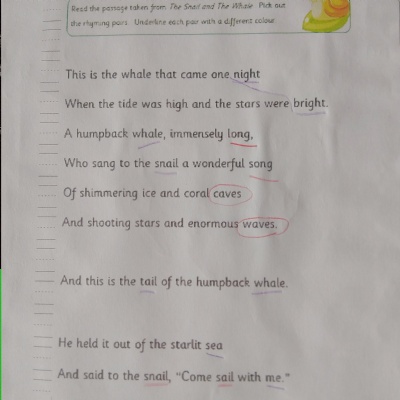 Read the passage taken from The Snail and The Whale. Pick out
the rhyming pairs. Underline each pair with a different colour.
This is the whale that came one night
When the tide was high and the stars were bright.
A humpback whale, immensely long,
Who sang to the snail a wonderful song
Of shimmering ice and coral caves
And shooting stars and enormous waves.
And this is the tail of the humpback whale.
He held it out of the starlit sea
And said to the snail, "Come sail with me."